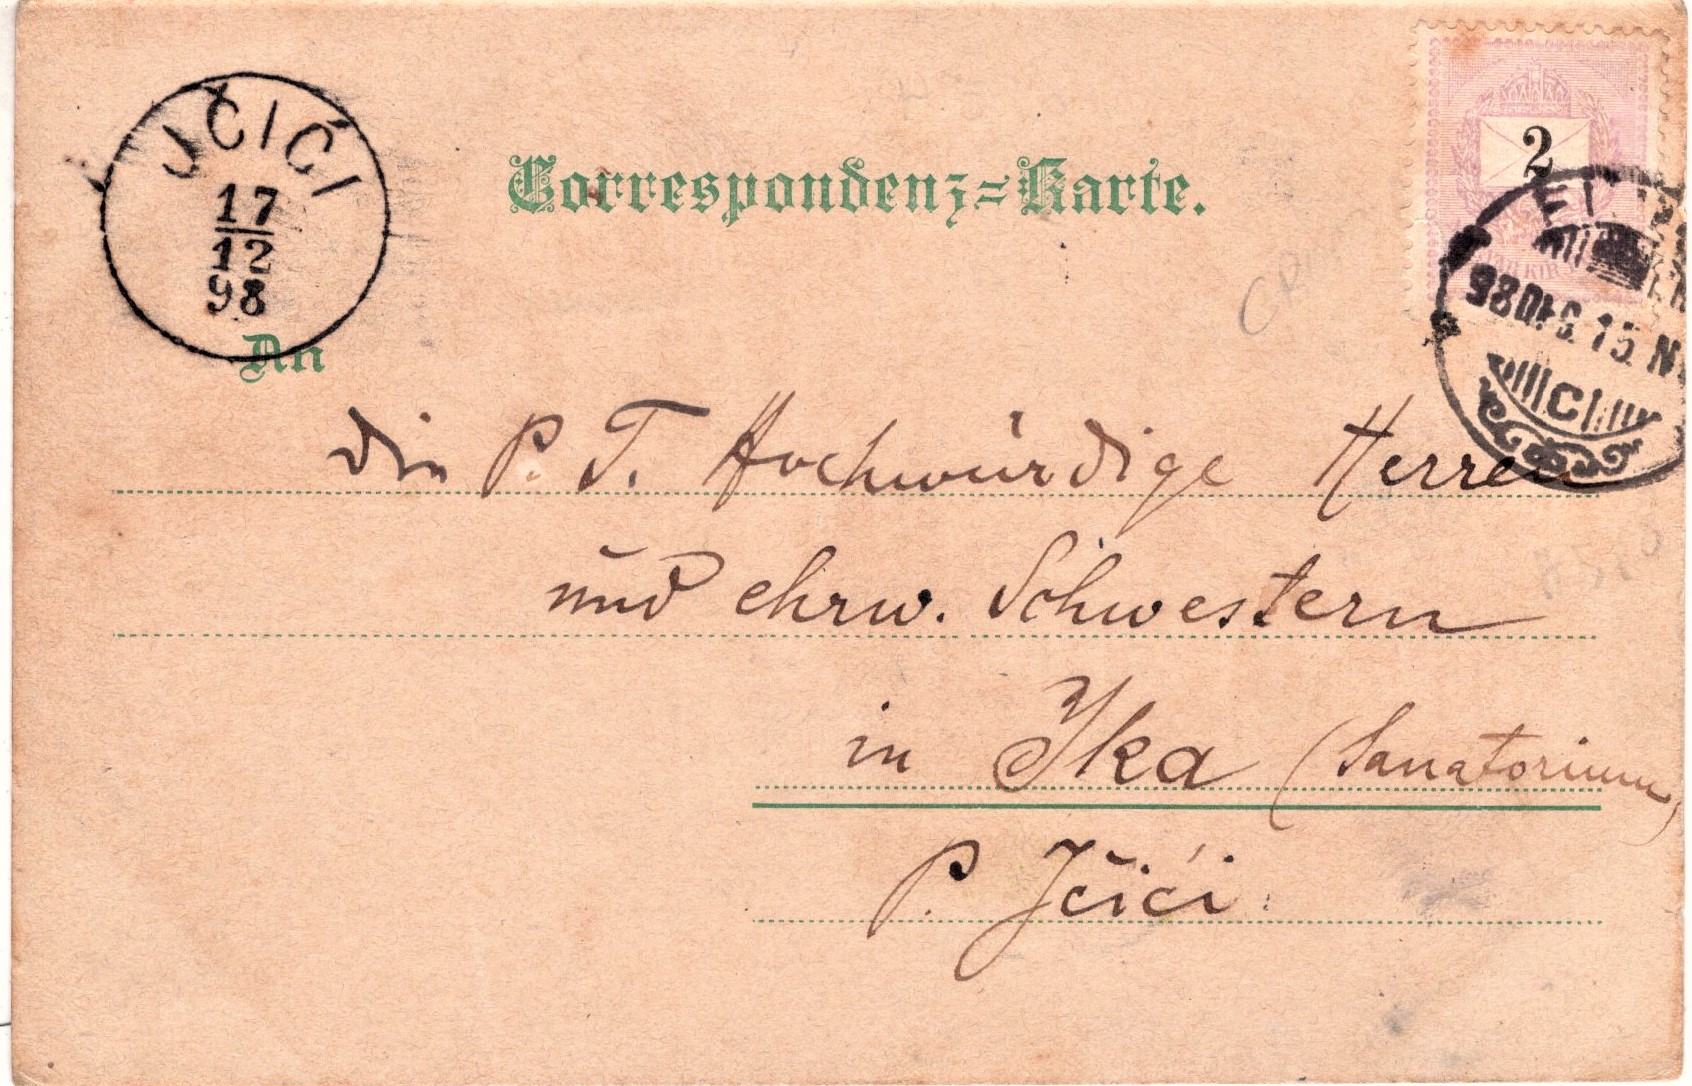 JČIĆI
17
12
98
Correspondenz=Karte.
2
An
98 15 N
C
die P. T. Hochwürdige Herren
und ehrw. Schwestern
in Ika (Sanatorium)
P. Jčići